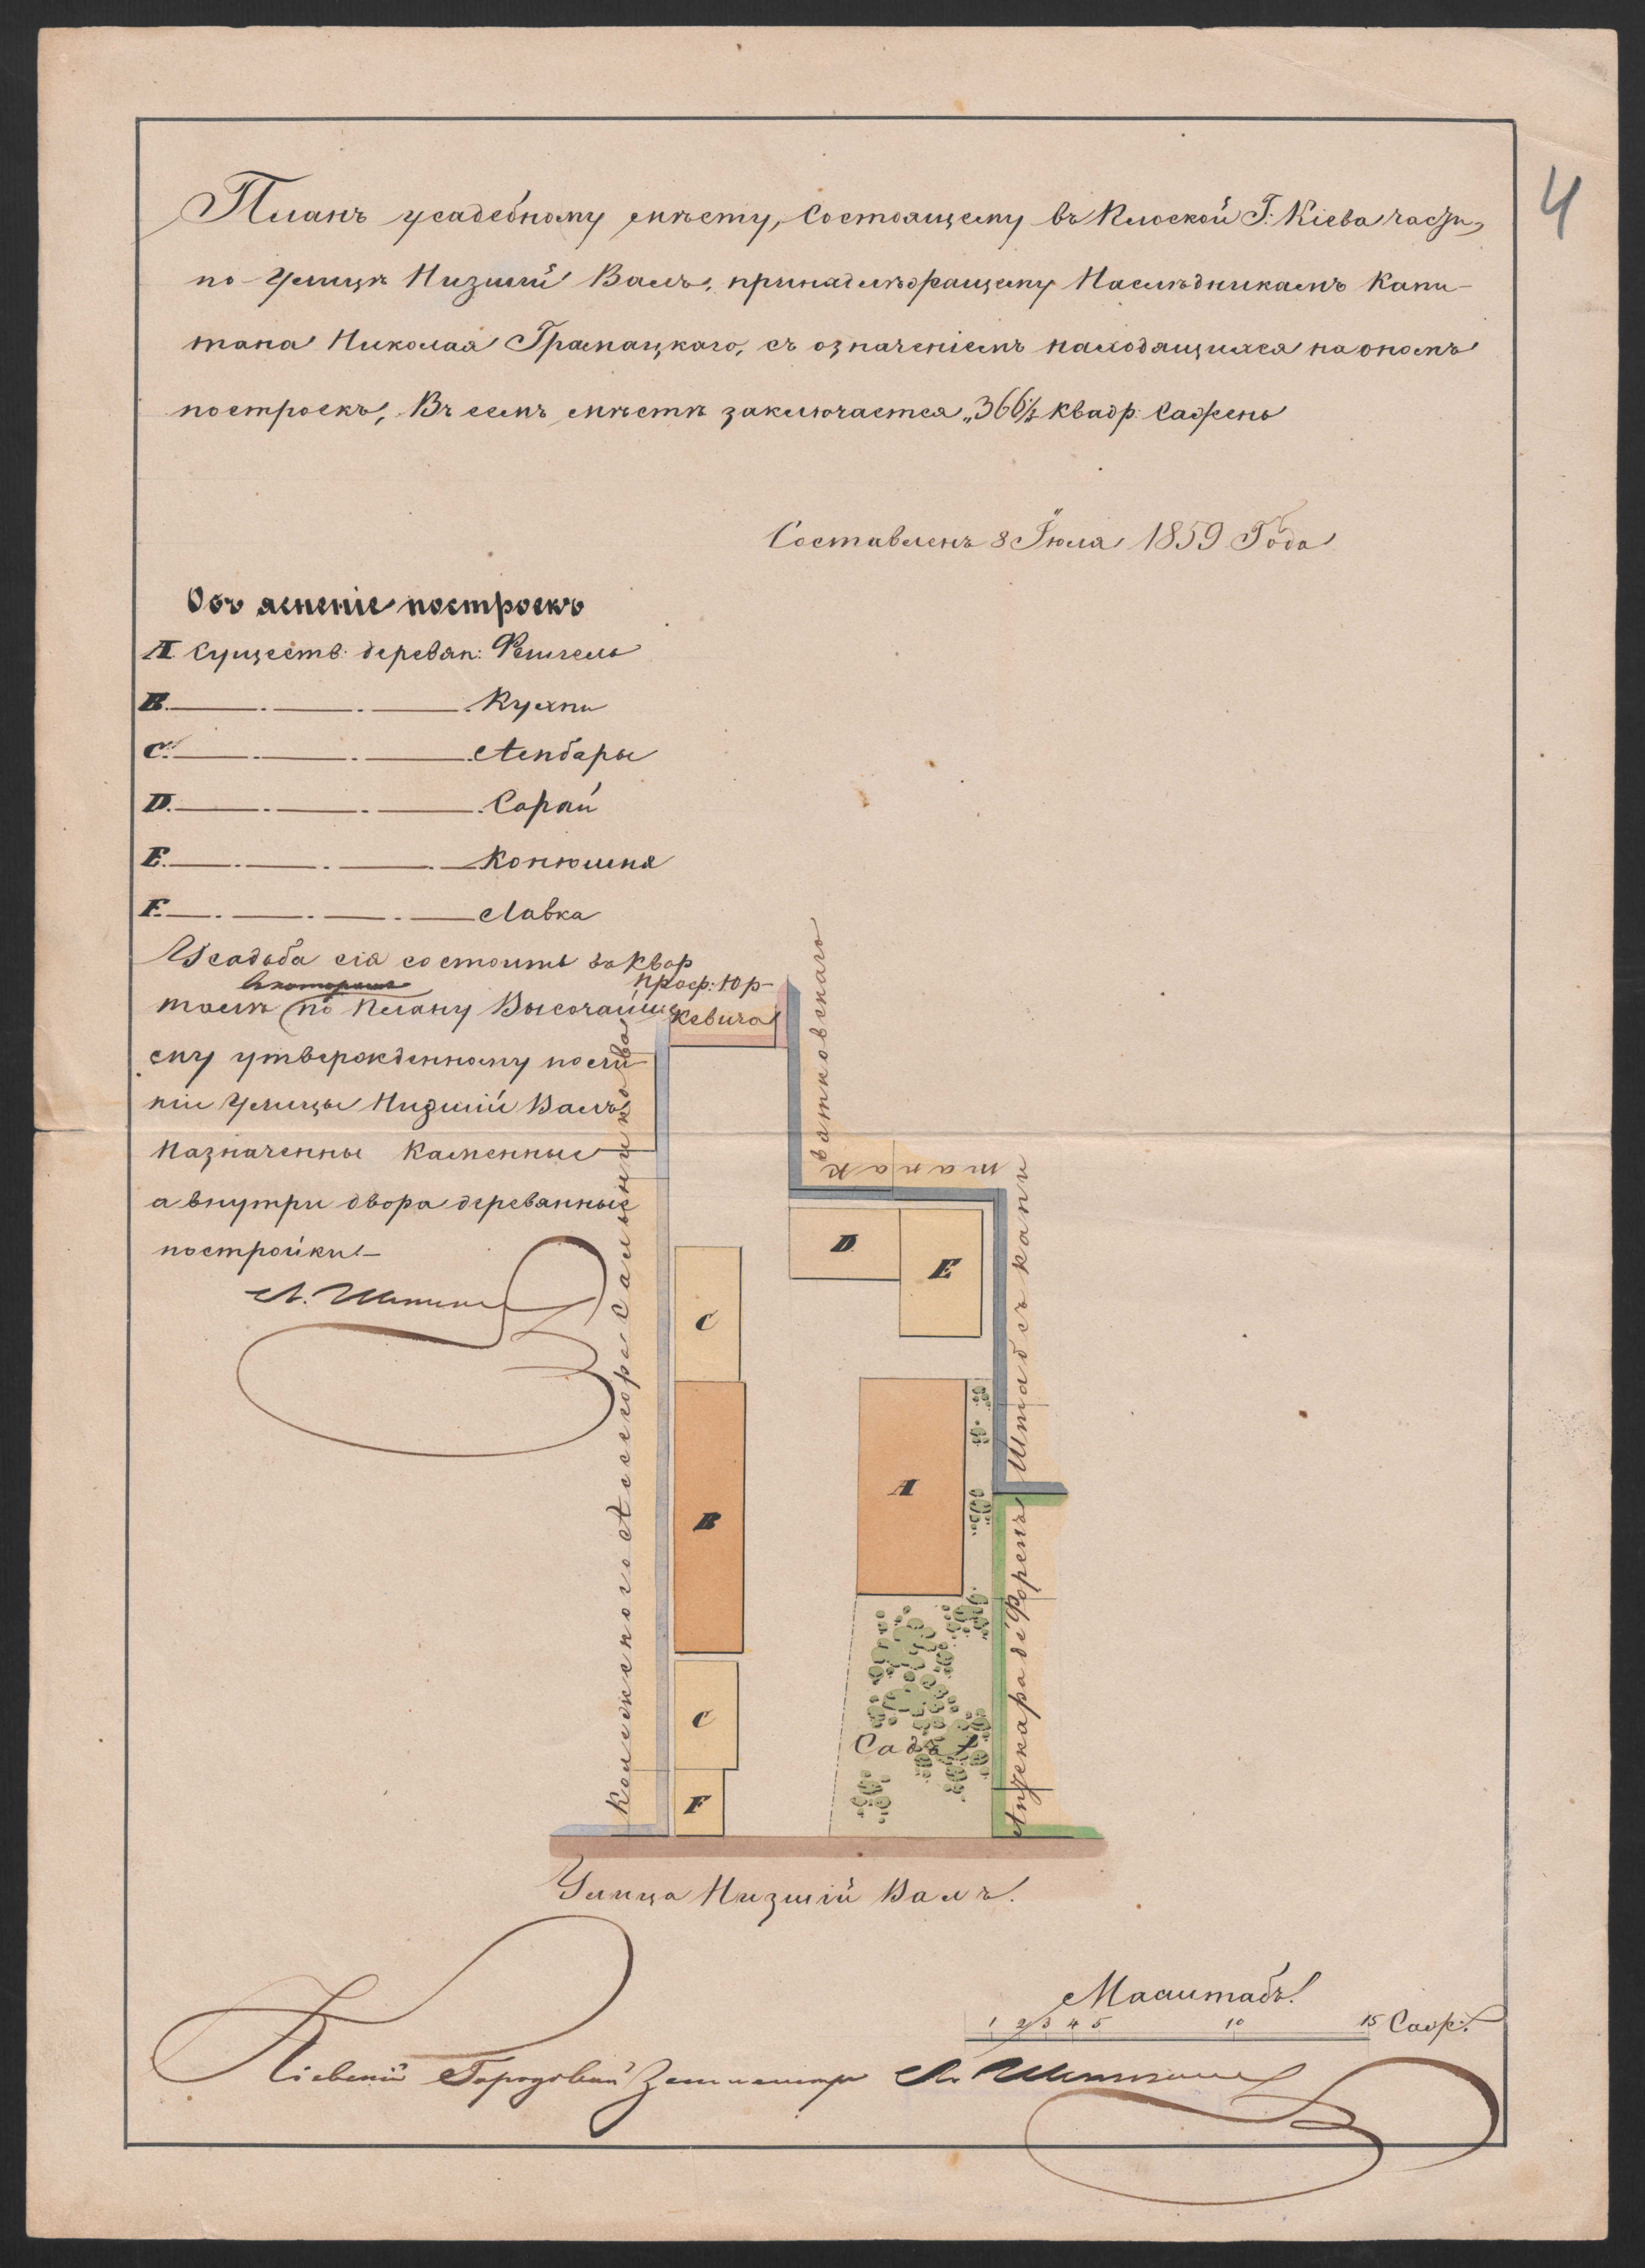 4
Планъ усадебному мѣсту, состоящему въ Плоской Г: Кіева части,
по Улицѣ Низшій Валъ, принадлѣжащему Наслѣдникамъ Капи-
тана Николая Грамацкаго, съ означеніемъ находящихся на ономъ
построекъ, Въ семъ мѣстѣ заключается „366½ квадр: Сажень
Составленъ 8 Іюля 1859 Года
Объясненіе построекъ
A. Существ: деревян: Флигель
B. Кухни
C. Амбары
D. Сарай
E. Конюшня
F. Лавка
Усадьба сія состоитъ въ Квар
талѣ въ которомъ по Плану Высочайше
ему утвержденному по ли
ніи Улицы Низшій Валъ
назначенны каменные
а внутри двора деревянные
постройки.—
проф: Юр-
кевича
Колежского Ассесора Сальникова
Штабсъ капи
тана К
вятковскаго
Аптекаря де Форенъ
D
E
C
B
A
C
F
Садъ
Улица Низшій Валъ.
Масштабъ.
1 2 3 4 5 10 15 Саж:
Кіевскій Городовый Землемѣръ